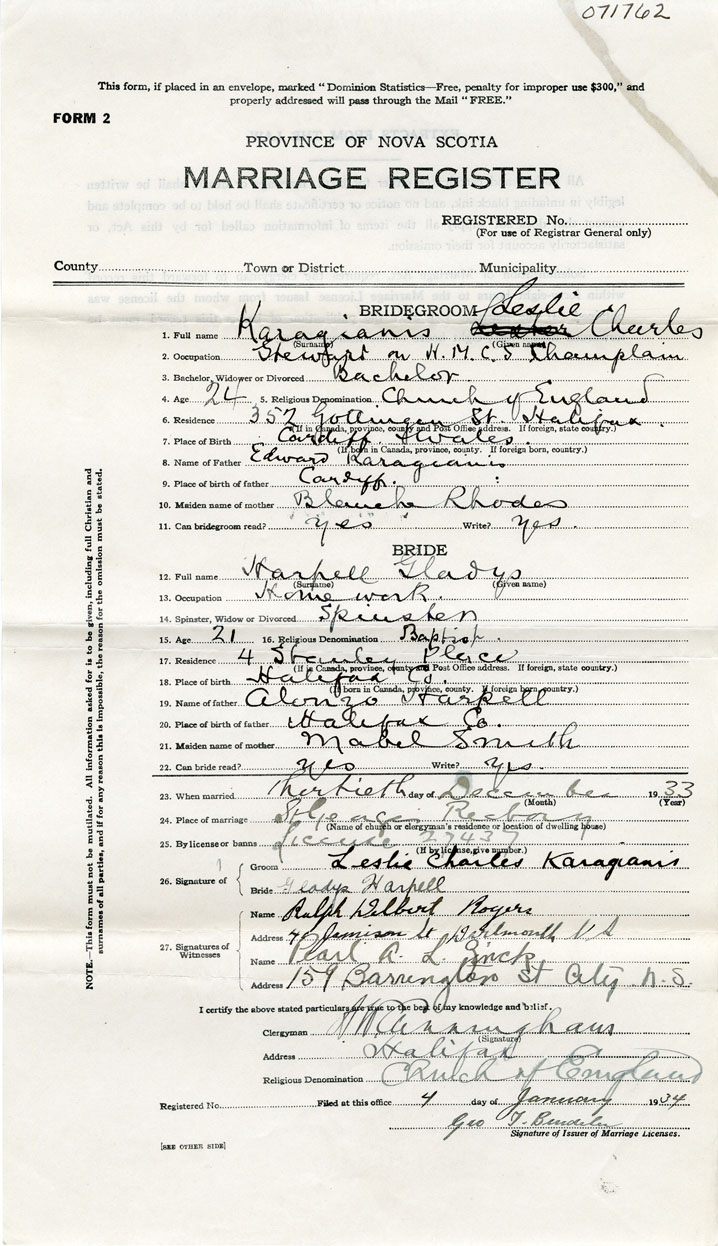 071762
This form, if placed in an envelope, marked "Dominion Statistics—Free, penalty for improper use $300," and
properly addressed will pass through the Mail "FREE."
FORM 2
PROVINCE OF NOVA SCOTIA
MARRIAGE REGISTER
REGISTERED No.
(For use of Registrar General only)
County Town or District Municipality
BRIDEGROOM Leslie
1. Full name Karagianis Charles
(Surname) (Given name)
2. Occupation Stewart on H.M.C.S Champlain
3. Bachelor, Widower or Divorced Bachelor
4. Age 24 5. Religious Denomination Church of England
6. Residence 352 Gottingen St Halifax.
(If in Canada, province, county and Post Office address. If foreign, state country.)
7. Place of Birth Cardiff Swales.
(If born in Canada, province, county. If foreign born, country.)
8. Name of Father Edward Karagianis
9. Place of birth of father Cardiff.
10. Maiden name of mother Blanche Rhodes
11. Can bridegroom read? "yes" Write? yes.
BRIDE
12. Full name Harpell Gladys
(Surname) (Given name)
13. Occupation Home work.
14. Spinster, Widow or Divorced Spinster
15. Age 21 16. Religious Denomination Baptist.
17. Residence 4 Stanley Place
(If in Canada, province, county and Post Office address. If foreign, state country.)
18. Place of birth Halifax Co.
(If born in Canada, province, county. If foreign born, country.)
19. Name of father Alonzo Harpell
20. Place of birth of father Halifax Co.
21. Maiden name of mother Mabel Smith
22. Can bride read? yes Write? yes.
23. When married thertieth day of December 1933
(Month) (Year)
24. Place of marriage St Georges Rectory
(Name of church or clergyman's residence or location of dwelling house)
25. By license or banns License 27437
(If by license, give number.)
26. Signature of
Groom Leslie Charles Karagianis
Bride Gladys Harpell
27. Signatures of Witnesses
Name Ralph Delbert Rogers
Address Jamison St Dartmouth N S
Name Pearl A. L Zinck
Address 159 Barrington St City N.S.
I certify the above stated particulars are true to the best of my knowledge and belief.
Clergyman Cunningham
(Signature)
Address Halifax
Religious Denomination Church of England
Registered No. Filed at this office 4 day of January 1934
Geo
Signature of Issuer of Marriage Licenses.
[SEE OTHER SIDE]
NOTE.—This form must not be mutilated. All information asked for is to be given, including full Christian and
surnames of all parties, and if for any reason this is impossible, the reason for the omission must be stated.